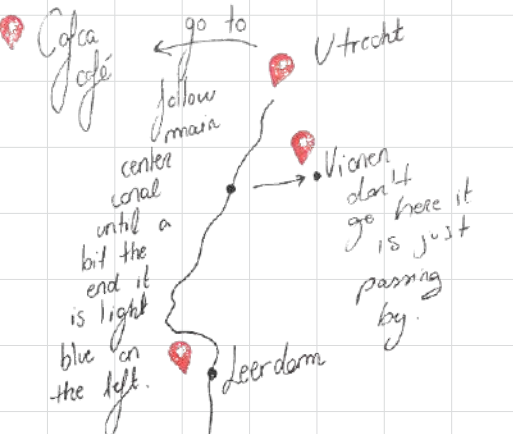 Cafca
café
go to
Utrecht
follow
main
center
canal
until a
bit the
end it
is light
blue on
the left.
Vianen
don't
go here it
is just
passing
by.
Leerdam